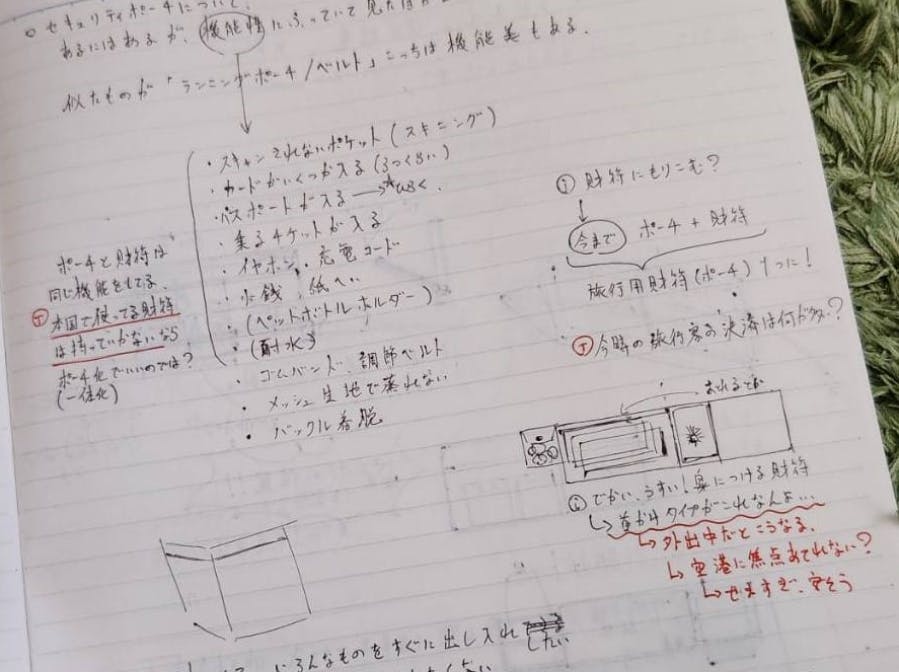 ○ セキュリティポーチについて
あるにはあるが、機能性にふっていて見た目が
似たものが「ランニングポーチ/ベルト」こっちは機能美もある.
・スキャンされないポケット(スキミング)
・カードがいくつか入る(3つくらい)
・パスポートが入る
・乗るチケットが入る
・イヤホン、充電コード
・小銭、紙へい
・(ペットボトルホルダー)
・(耐水)
・ゴムバンド、調節ベルト
・メッシュ生地で蒸れない
・バックル着脱
ポーチと財布は
同じ機能をもてる.
本国で使ってる財布
は持っていかないなら
ポーチ化でいいのでは?
(一体化)
① 財布にもりこむ?
今まで ポーチ + 財布
旅行用財布(ポーチ) 1つに!
今時の旅行客の決済は何が多い?
おれるとか
でかい、うすい!身につける財布
↳ 首かけタイプがこれなんよ…
↳ 外出中だとこうなる.
↳ 空港に焦点あてれない?
↳ せますぎ、安そう
いろんなものをすぐに出し入れ したい